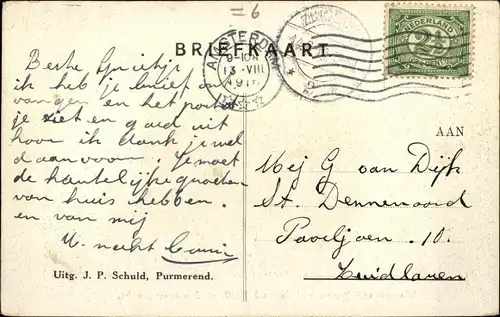 =6
BRIEFKAART
AMSTERDAM
13 VIII
NEDERLAND
2½
Beste Grietje
ik heb je brief ont
vangen en het portret
je ziet en goed uit
hoor ik dank je wel
daarvoor. Je moet
de hartelijke groeten
van huis hebben.
en van mij
AAN
Mej G van Dijk
St. Dennenoord
Paviljoen 10.
Zuidlaren
Uitg. J. P. Schuld, Purmerend.